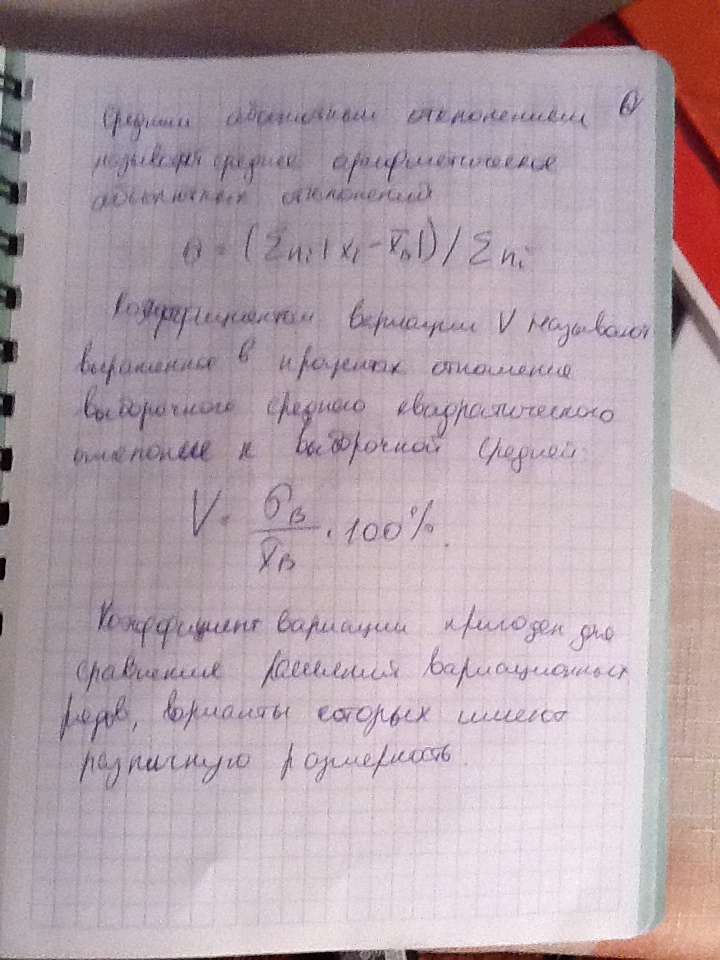 Средним абсолютным отклонением θ
называется среднее арифметическое
абсолютных отклонений
θ = (Σnᵢ|xᵢ - x̄в|)/Σnᵢ
Коэффициентом вариации V называют
выраженное в процентах отношение
выборочного среднего квадратического
отклонение к выборочной средней:
V = σв/x̄в · 100%.
Коэффициент вариации пригоден для
сравнение рассеяния вариационных
рядов, варианты которых имеют
различную размерность.